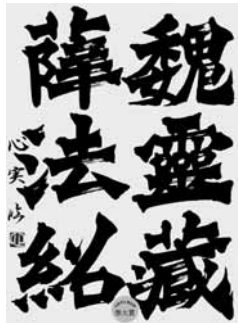 魏靈藏
薛法紹
心実臨